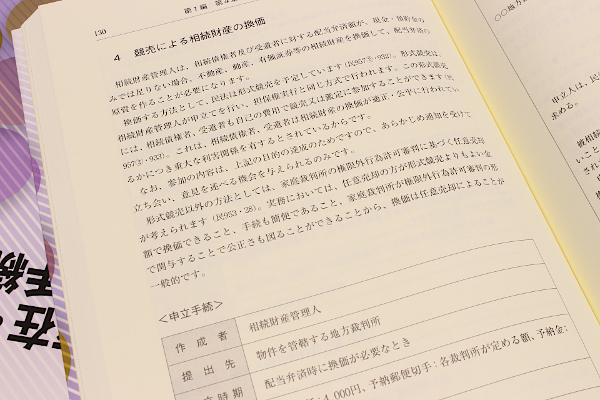 130
第7編
4 競売による相続財産の換価
相続財産管理人は、相続債権者及び受遺者に対する配当弁済額が、現金・預貯金の
みでは足りない場合、不動産、動産、有価証券等の相続財産を換価して、配当弁済の
原資を作ることが必要になります。
換価する方法として、民法は形式競売を予定しています（民957②・932）。形式競売は、
相続財産管理人が申立てを行い、担保権実行と同じ方式で行われます。この形式競売
には、相続債権者、受遺者も自己の費用で競売又は鑑定に参加することができます（民
957②・933）。これは、相続債権者、受遺者は相続財産の換価が適正・公平に行われてい
るかにつき重大な利害関係を有するとされているからです。
なお、参加の内容は、上記の目的の達成のためですので、あらかじめ通知を受けて
立ち会い、意見を述べる機会を与えられるのみです。
形式競売以外の方法としては、家庭裁判所の権限外行為許可審判に基づく任意売却
が考えられます（民953・28）。実務においては、任意売却の方が形式競売よりもよい金
額で換価できること、手続も簡便であること、家庭裁判所が権限外行為許可審判の形
で関与することで公正さも図ることができることから、換価は任意売却によることが
一般的です。
＜申立手続＞
作成者 相続財産管理人
提出先 物件を管轄する地方裁判所
時期 配当弁済時に換価が必要なとき
4,000円、予納郵便切手：各裁判所が定める額、予納金：
○○地方
申立人は、
求める。
被相続